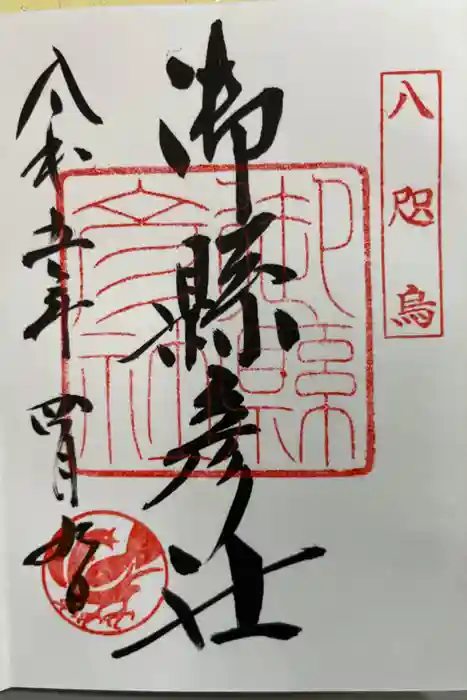 八咫烏
御縣彦社
令和五年四月九日
御縣
彦社